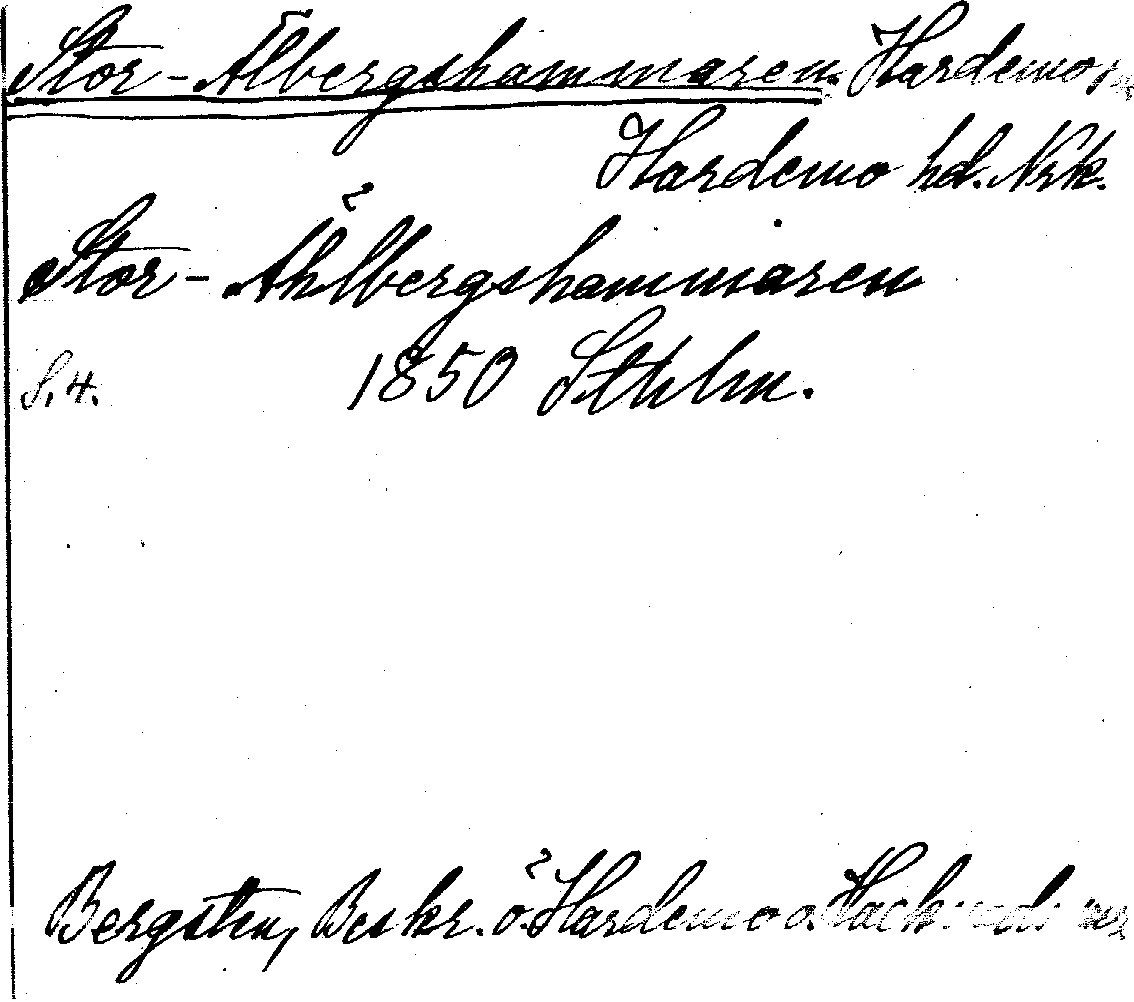 Stor-Ålbergshammaren. Hardemo
Hardemo hd. Nrk.
Stor-Åhlbergshammaren
S. 4. 1850 Sthlm.
Bergsten, Beskr. ö. Hardemo o.